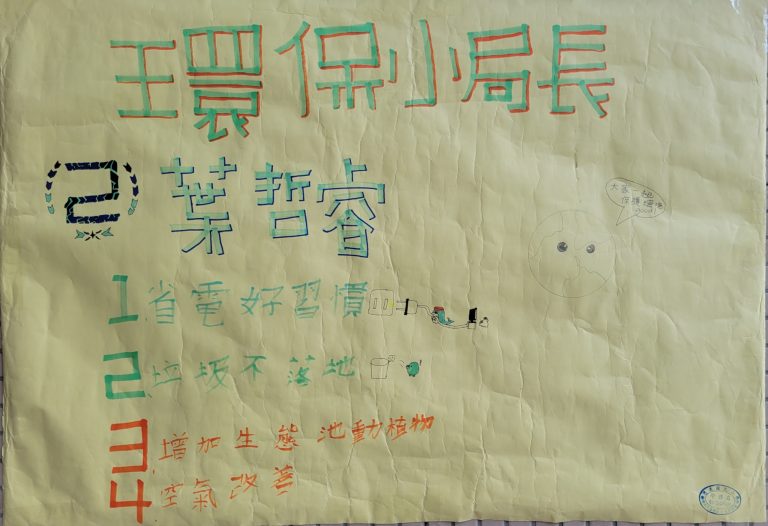 環保小局長
2 葉哲睿
大家一起
保護環境
good!
1 省電好習慣
2 垃圾不落地
3 增加生態池動植物
4 空氣改善